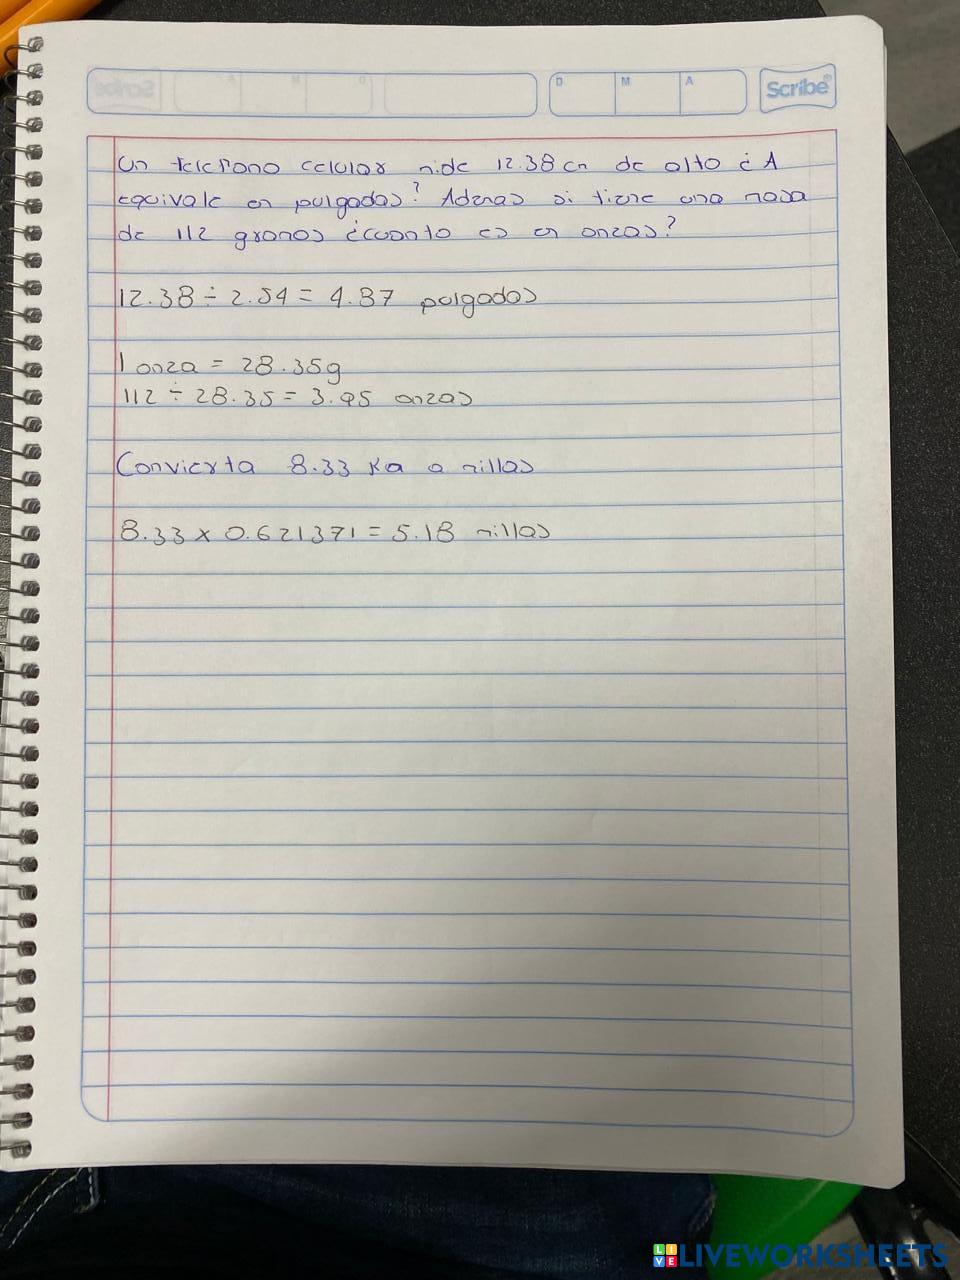 Scribe
D M A
Un telefono celular mide 12.38 cm de alto ¿A
equivale en pulgadas? Ademas si tiene una masa
de 112 gramos ¿cuanto es en onzas?
12.38 ÷ 2.54 = 4.87 pulgadas
1 onza = 28.35g
112 ÷ 28.35 = 3.95 onzas
Convierta 8.33 Km a millas
8.33 x 0.621371 = 5.18 millas
LIVEWORKSHEETS